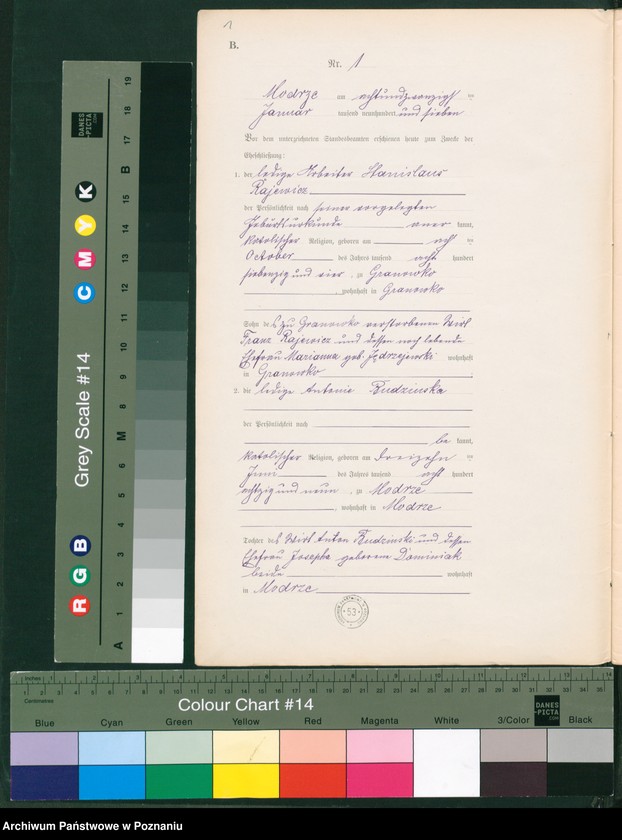 1
B.
Nr. 1
Modrze am achtundzwanzigsten
Januar tausend neunhundert und sieben
Vor dem unterzeichneten Standesbeamten erschienen heute zum Zwecke der
Eheschließung:
1. der ledige Arbeiter Stanislaus
Rajewicz
der Persönlichkeit nach seiner vorgelegten
Geburtsurkunde aner kannt,
katolischer Religion, geboren am
October des Jahres tausend acht hundert
siebenzig und vier, zu Granowko
, wohnhaft in Granowko
Sohn des zu Granowko verstorbenen Wirt
Franz Rajewicz und dessen noch lebende
Ehefrau Marianna geb. Jędrzejewski wohnhaft
in Granowko
2. die ledige Antonie Budzinska
der Persönlichkeit nach
be kannt,
katolischer Religion, geboren am dreizehn ten
des Jahres tausend acht hundert
achtzig und neun, zu Modrze
, wohnhaft in Modrze
Tochter des Wirt Anton Budzinski und dessen
Ehefrau Josepha geborene Dominiak
beide wohnhaft
in Modrze
53
Grey Scale #14
R G B
C M Y K
A 1 2 3 4 5 6 M 8 9 10 11 12 13 14 15 B 17 18 19
DANES
-PICTA
.COM
Inches
Centimetres
Colour Chart #14
DANES
-PICTA
.COM
Blue Cyan Green Yellow Red Magenta White 3/Color Black
Archiwum Państwowe w Poznaniu